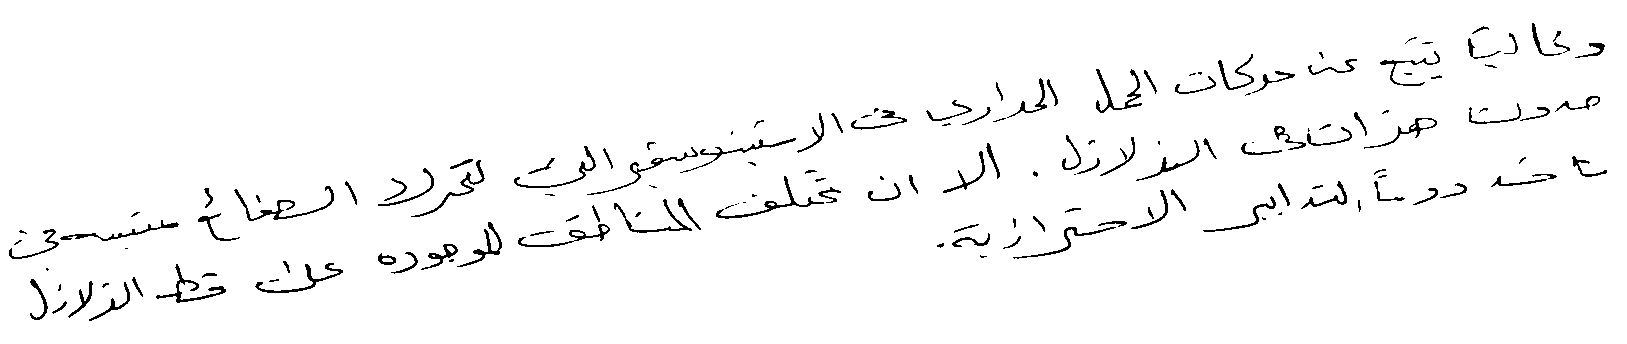 وغالباً ينتج عن حركات الحمل الحراري في الاستينوسفير التي لتحرك الصفائح متسببه في
حدوث هزات في الزلازل. الا ان تختلف المناطق الموجوده على خط الزلازل
تأخذ دوماً التدابير الاحترازية.